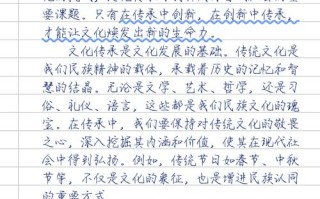 要课题。只有在传承中创新，在创新中传承，
才能让文化焕发出新的生命力。
文化传承是文化发展的基础。传统文化是
我们民族精神的载体，承载着历史的记忆和智
慧的结晶。无论是文学、艺术、哲学，还是习
俗、礼仪、语言，这些都是我们民族文化的瑰
宝。在传承中，我们要保持对传统文化的敬畏
之心，深入挖掘其内涵和价值，使其在现代社
会中得到弘扬。例如，传统节日如春节、中秋
节等，不仅是文化的象征，也是增进民族认同
的重要方式